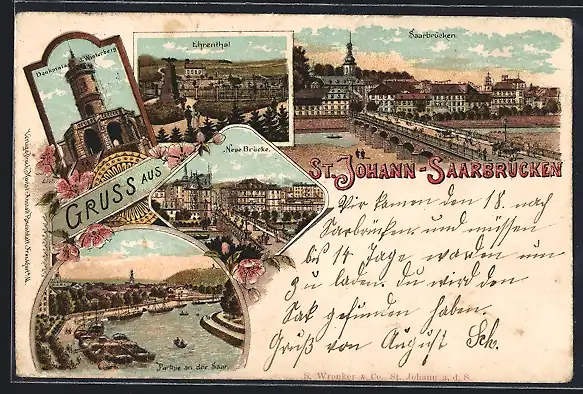 Denkmal a. d. Winterberg
Ehrenthal
Saarbrücken
Neue Brücke.
ST. JOHANN-SAARBRÜCKEN
GRUSS AUS
Partie an der Saar.
Wir kamen den 18. nach
Saarbrücken und müssen
bis 14 Tage warten um
zu laden. du wird den
Sak gefunden haben.
Gruß von August Sch.
S. Wronker & Co., St. Johann a. d. S.